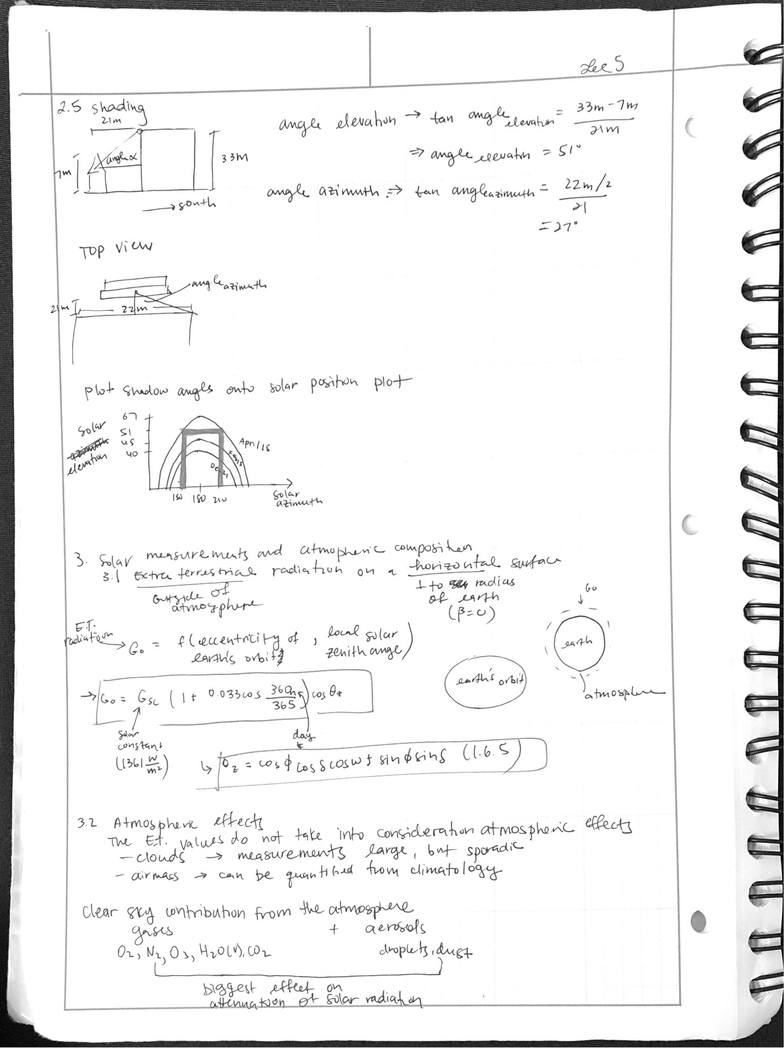 Lec 5
2.5 shading
21m
angle α
7m
33m
→ south
angle elevation → tan angle elevation = 33m - 7m / 21m
⇒ angle elevation = 51°
angle azimuth ⇒ tan angle azimuth = 22m/2 / 21
= 27°
TOP VIEW
angle azimuth
21m
22m
plot shadow angles onto solar position plot
solar
elevation
67
51
45
40
April 15
Dec 21
150 180 210
solar
azimuth
3. Solar measurements and atmospheric composition
3.1 Extra terrestrial radiation on a horizontal surface
outside of
atmosphere
⊥ to radias
of earth
(β=0)
E.T.
radiation
G₀ = f(eccentricity of earth's orbit, local solar zenith angle)
earth's orbit
G₀
earth
atmosphere
→ G₀ = Gsc (1 + 0.033cos 360n/365) cos θz
solar
constant
(1361 W/m²)
day
↳ θz = cosϕ cosδ cosω + sinϕ sinδ (1.6.5)
3.2 Atmospheric effects
The E.T. values do not take into consideration atmospheric effects
- clouds → measurements large, but sporadic
- airmass → can be quantified from climatology
Clear sky contribution from the atmosphere
gases + aerosols
O₂, N₂, O₃, H₂O(v), CO₂ droplets, dust
biggest effect on
attenuation of solar radiation